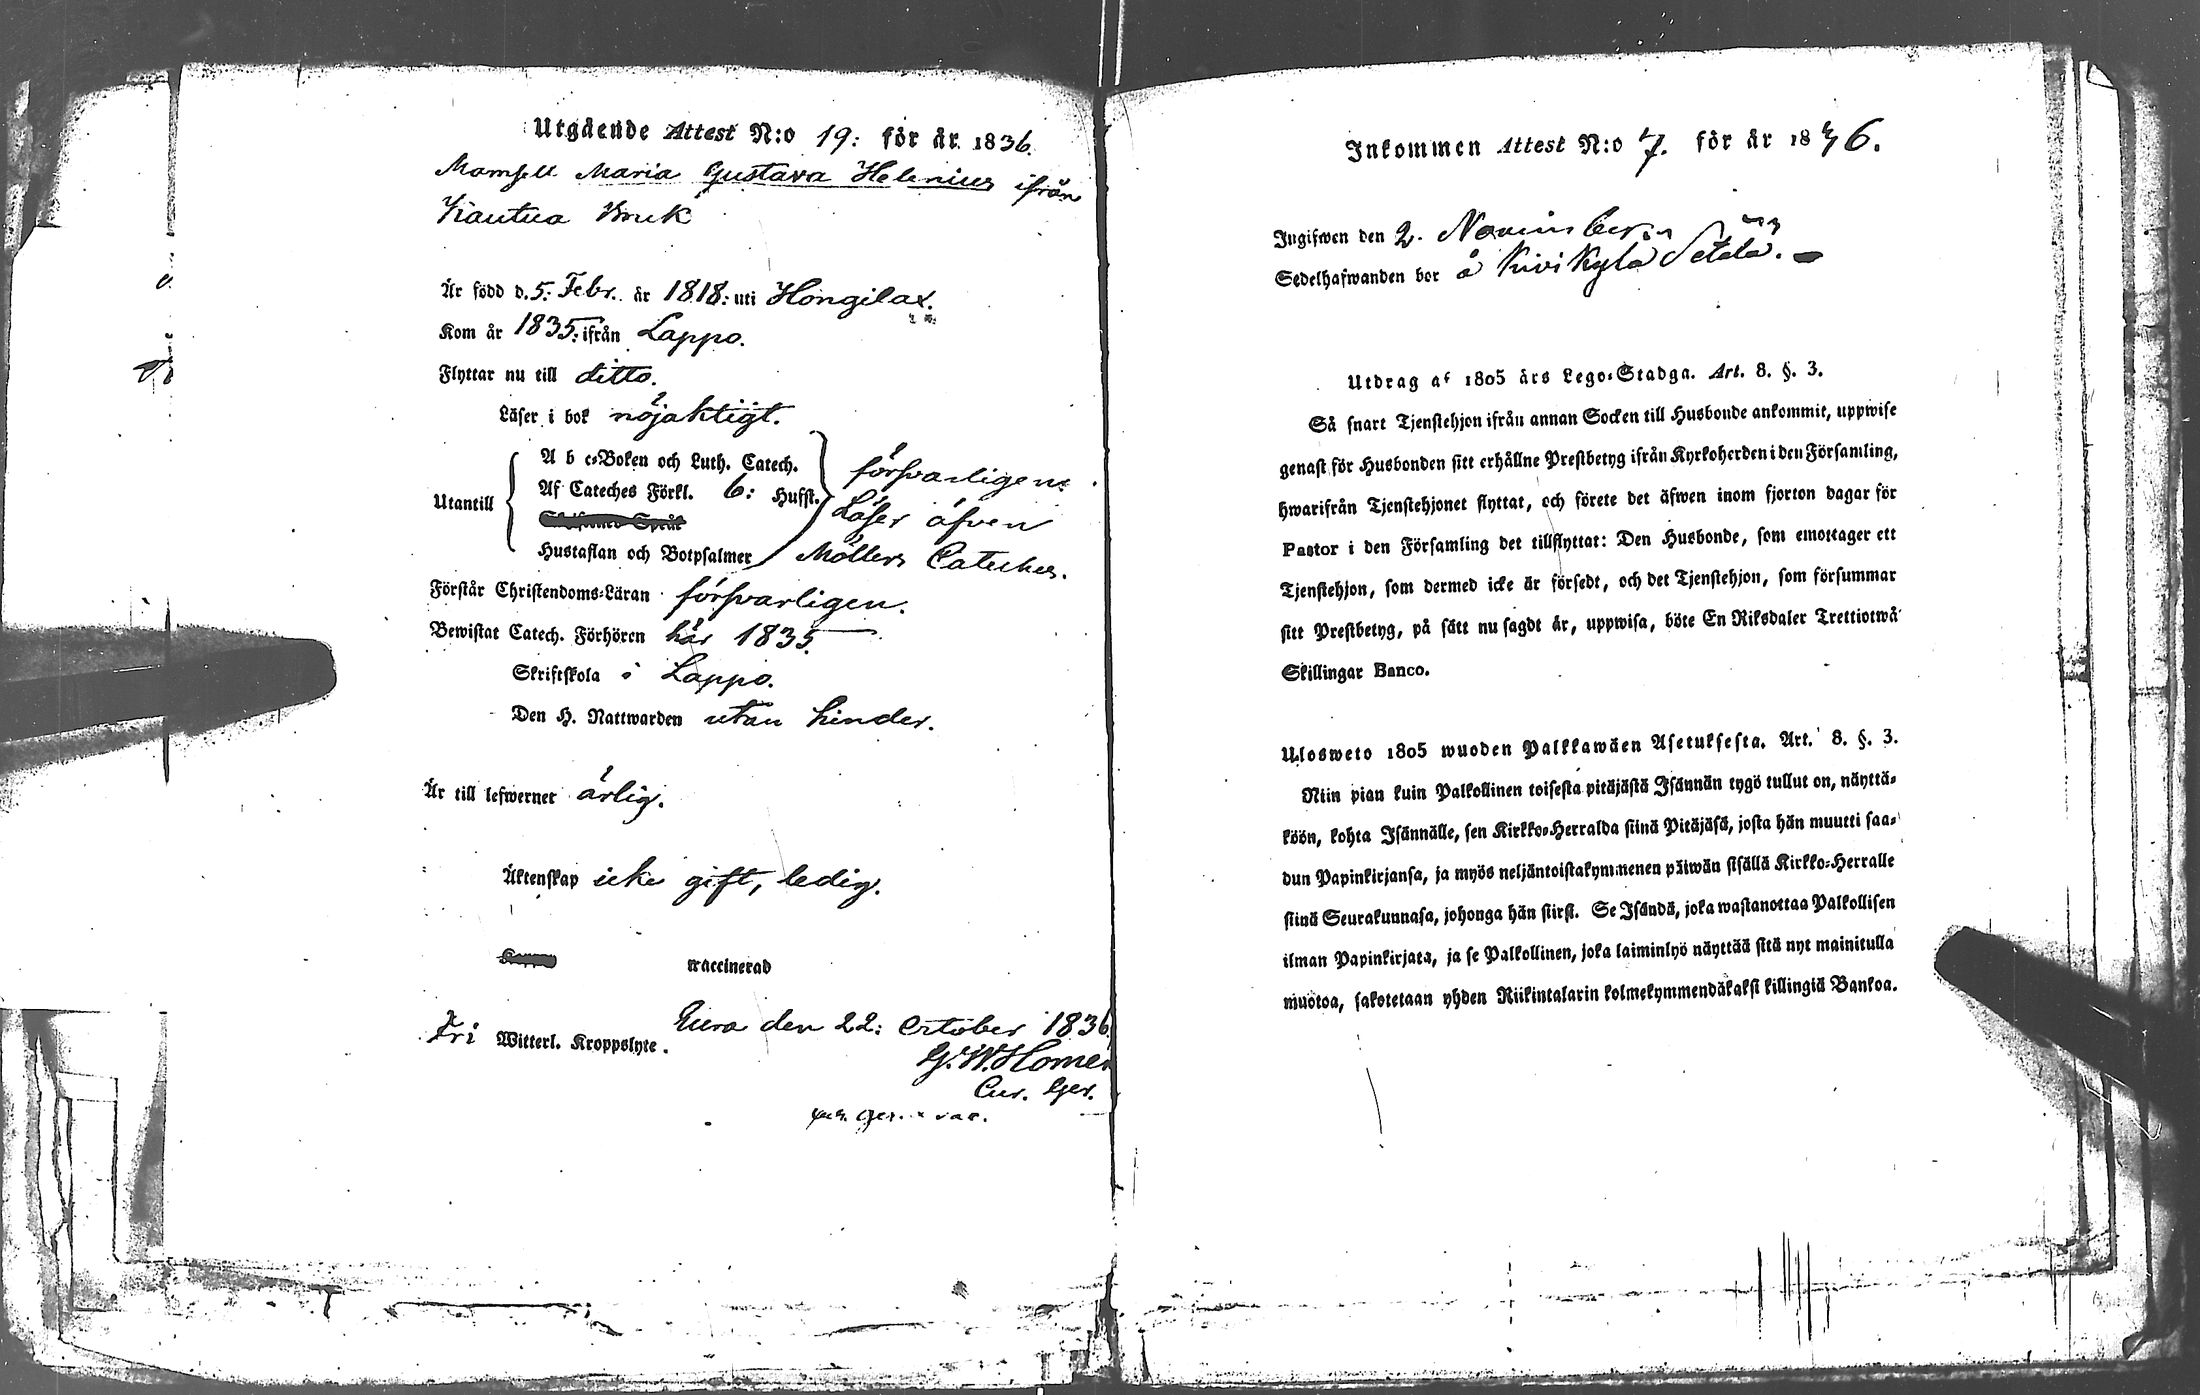 Utgående Attest N:o 19: för år 1836.
Mamsell Maria Gustava Helenius ifrån
Kautua Bruk
Är född d. 5: Febr. år 1818: uti Hongilax.
Kom år 1835: ifrån Lappo.
Flyttar nu till ditto.
Läser i bok nöjaktigt.
Utantill
A b c-Boken och Luth. Catech.
Af Cateches Förkl. 6: Hufst.
Hustaflan och Botpsalmer
försvarligen.
Läser äfven
Möllers Cateches.
Förstår Christendoms-Läran försvarligen.
Bewistat Catech. Förhören här 1835.
Skriftskola i Lappo.
Den H. Nattwarden utan hinder.
Är till lefwernet ärlig.
Äktenskap icke gift, ledig.
waccinerad
Fri Witterl. Kroppslyte.
Eura den 22: October 1836
G. W. Homén
Cur. Ger.
Inkommen Attest N:o 7. för år 1836.
Ingifwen den 2. November
Sedelhafwanden bor å Kivikylä Setälä.
Utdrag af 1805 års Lego-Stadga. Art. 8. §. 3.
Så snart Tjenstehjon ifrån annan Socken till Husbonde ankommit, uppwise
genast för Husbonden sitt erhållne Prestbetyg ifrån Kyrkoherden i den Församling,
hwarifrån Tjenstehjonet flyttat, och förete det äfwen inom fjorton dagar för
Pastor i den Församling det tillflyttat: Den Husbonde, som emottager ett
Tjenstehjon, som dermed icke är försedt, och det Tjenstehjon, som försummar
sitt Prestbetyg, på sätt nu sagdt är, uppwisa, böte En Riksdaler Trettiotwå
Skillingar Banco.
Ulosweto 1805 wuoden Palkkawäen Asetuksesta. Art. 8. §. 3.
Niin pian kuin Palkollinen toisesta pitäjästä Isännän tygö tullut on, näyttä-
köön, kohta Isännälle, sen Kirkko-Herralda siinä Pitäjäsä, josta hän muutti saa-
dun Papinkirjansa, ja myös neljäntoistakymmenen päiwän sisällä Kirkko-Herralle
siinä Seurakunnasa, johonga hän siirsi. Se Isändä, joka wastanottaa Palkollisen
ilman Papinkirjata, ja se Palkollinen, joka laiminlyö näyttää sitä nyt mainitulla
muotoa, sakotetaan yhden Riikintalarin kolmekymmendäkaksi killingiä Bankoa.